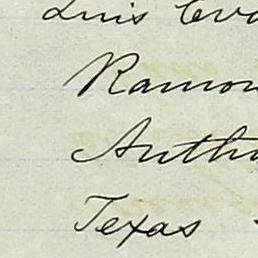 Luis
Ramon
Antho
Texas